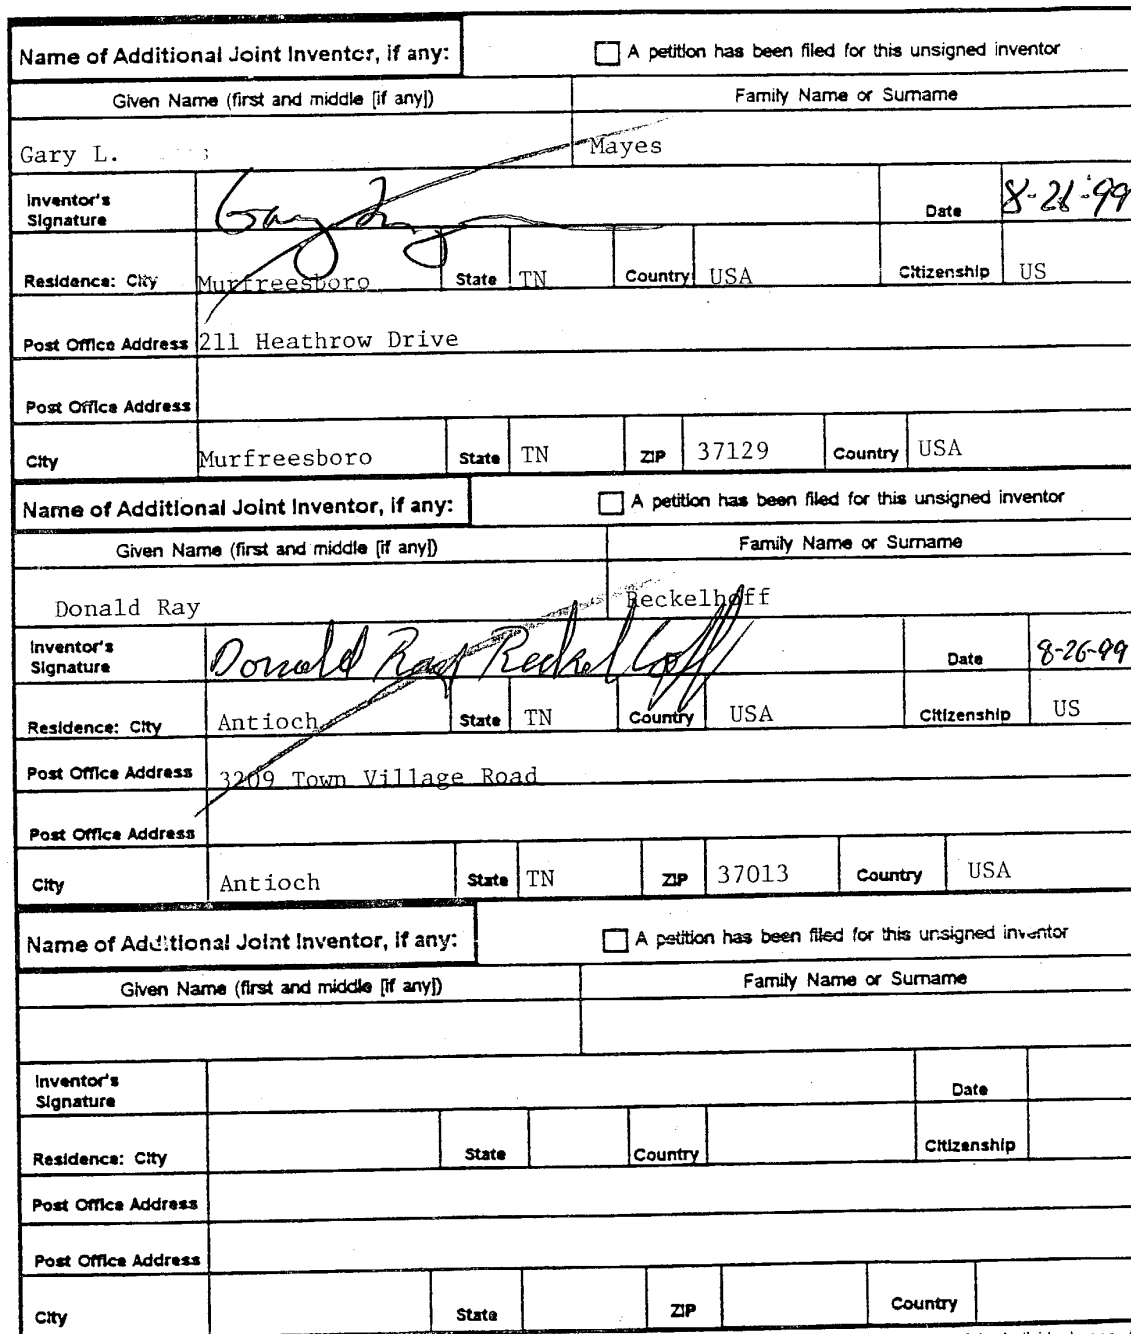 Name of Additional Joint Inventor, if any: A petition has been filed for this unsigned inventor
Given Name (first and middle [if any]) Family Name or Surname
Gary L. Mayes
Inventor's Signature Gary Date 8-26-99
Residence: City Murfreesboro State TN Country USA Citizenship US
Post Office Address 211 Heathrow Drive
Post Office Address
City Murfreesboro State TN ZIP 37129 Country USA
Name of Additional Joint Inventor, if any: A petition has been filed for this unsigned inventor
Given Name (first and middle [if any]) Family Name or Surname
Donald Ray Reckelhoff
Inventor's Signature Donald Ray Reckelhoff Date 8-26-99
Residence: City Antioch State TN Country USA Citizenship US
Post Office Address 3209 Town Village Road
Post Office Address
City Antioch State TN ZIP 37013 Country USA
Name of Additional Joint Inventor, if any: A petition has been filed for this unsigned inventor
Given Name (first and middle [if any]) Family Name or Surname
Inventor's Signature Date
Residence: City State Country Citizenship
Post Office Address
Post Office Address
City State ZIP Country